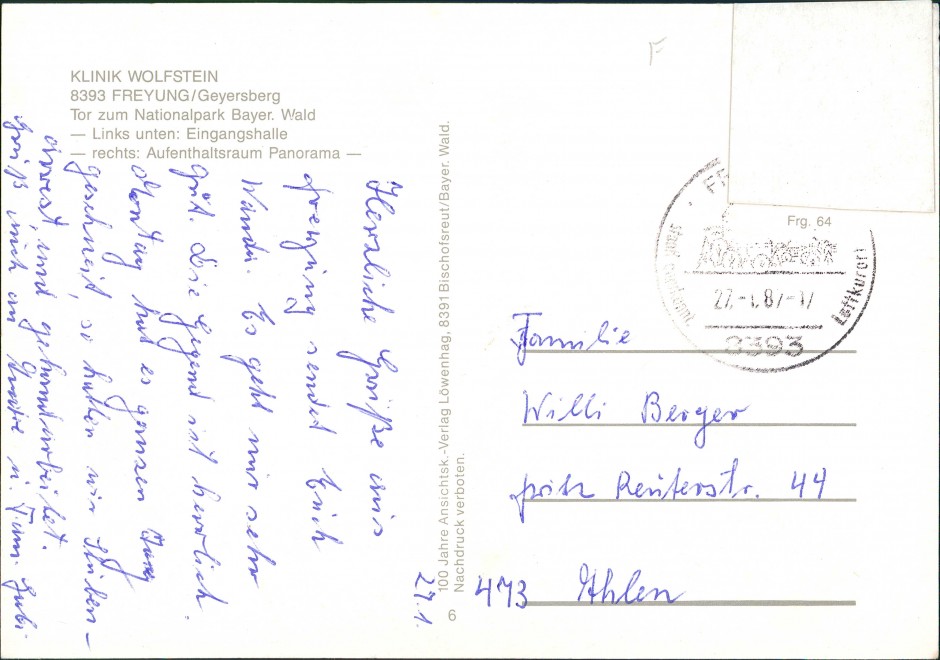 KLINIK WOLFSTEIN
8393 FREYUNG/Geyersberg
Tor zum Nationalpark Bayer. Wald
— Links unten: Eingangshalle
— rechts: Aufenthaltsraum Panorama —
Herzliche Grüße aus
Freyung sendet Euch
Wanda. Es geht mir sehr
gut. Die Gegend ist herrlich.
Montag hat es ganzen Tag
geschneit, so hatten wir Stuben-
arrest, und gehandarbeitet.
Grüß mich an u. Fam.
27.1.
100 Jahre Ansichtsk.-Verlag Löwenhag, 8391 Bischofsreut/Bayer. Wald.
Nachdruck verboten.
6
F
Frg. 64
FR
Luftkurort
27.-1.87-17
8393
Familie
Willi Berger
Fritz Reuterstr. 44
473 Ahlen